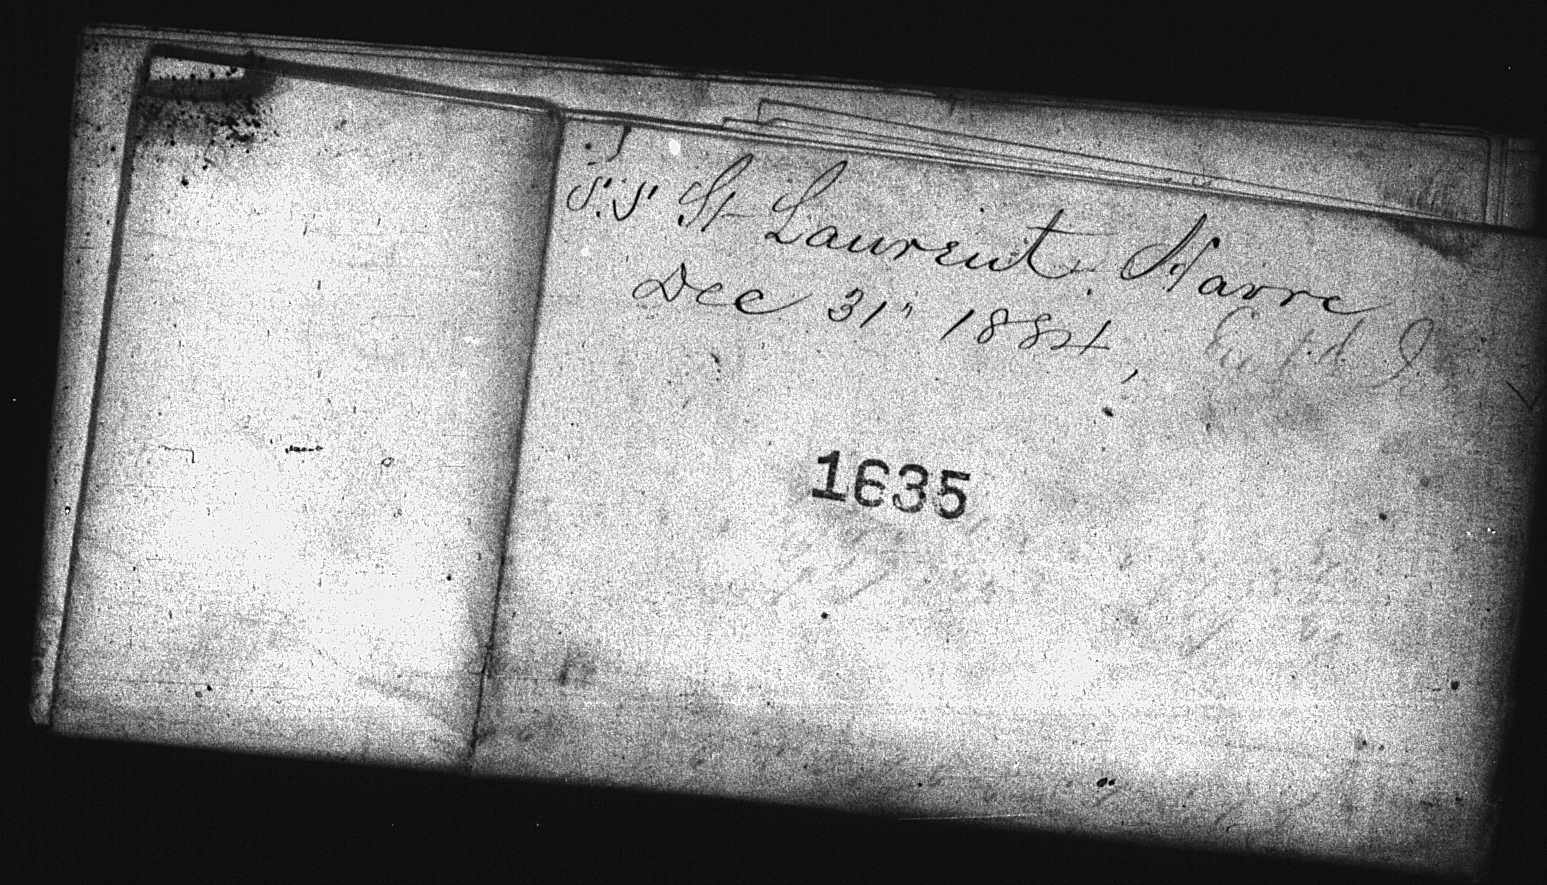 S.S St Laurent. Havre
Dec 31" 1884,
1635